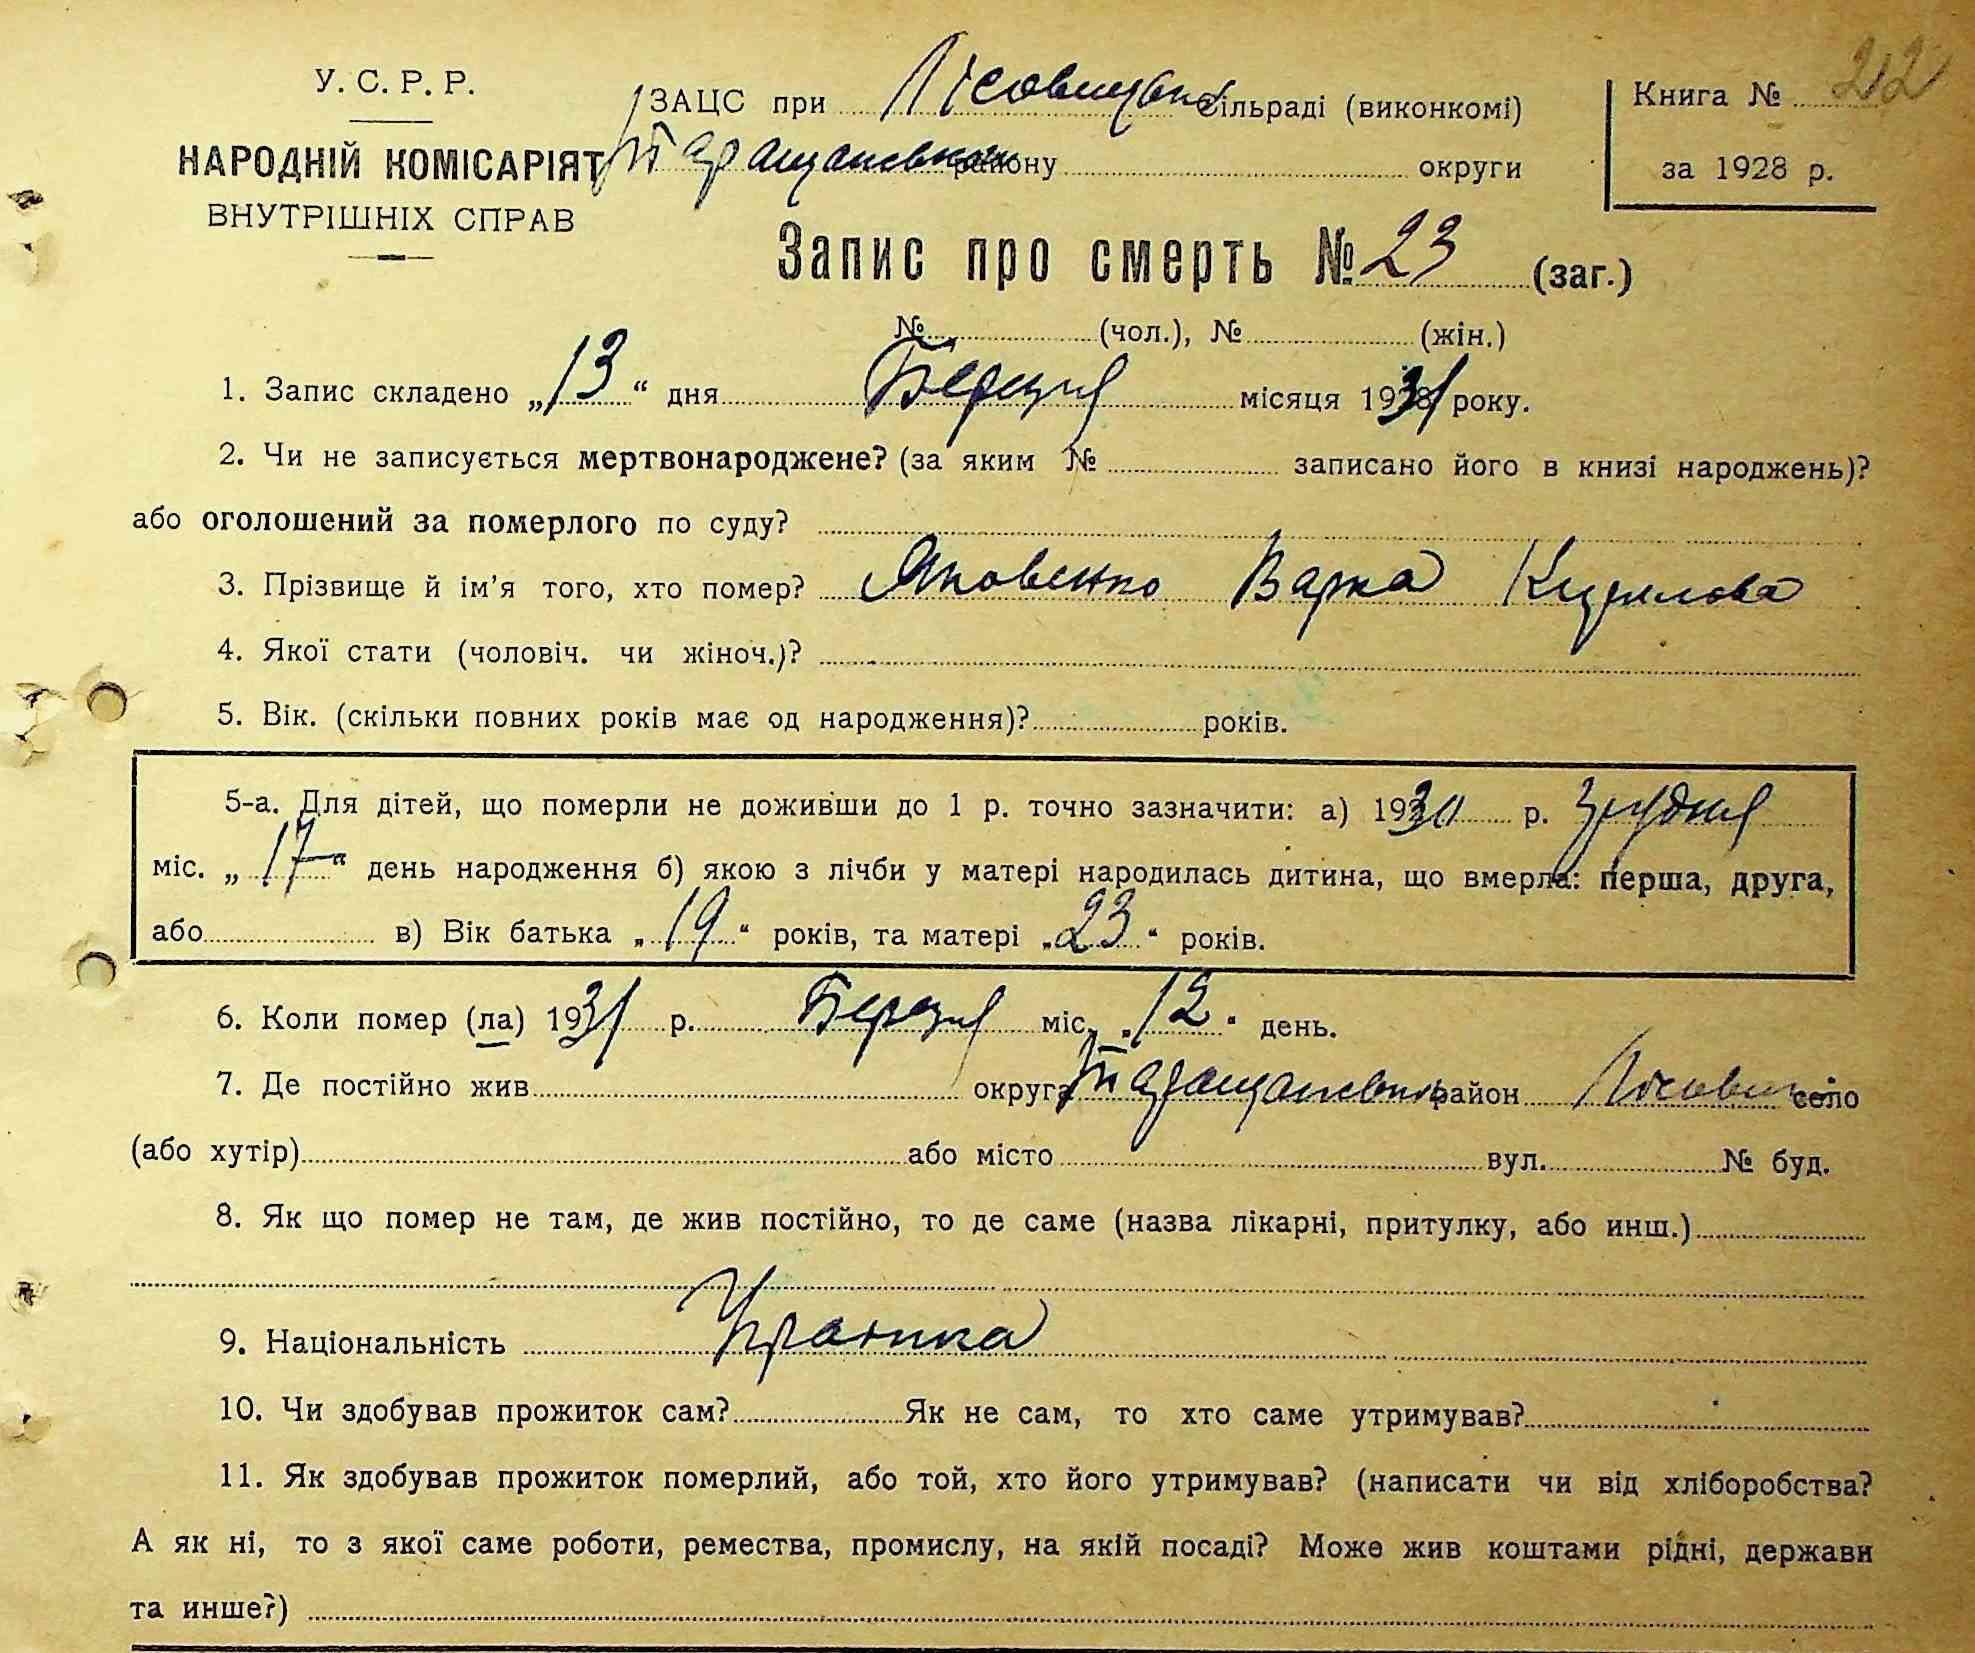 У. С. Р. Р.
НАРОДНІЙ КОМІСАРІЯТ
ВНУТРІШНІХ СПРАВ
ЗАЦС при Лісовицькій сільраді (виконкомі)
Таращанського району округи
Книга № 212
за 1928 р.
Запис про смерть № 23 (заг.)
№ (чол.), № (жін.)
1. Запис складено „13“ дня Березня місяця 1931 року.
2. Чи не записується мертвонароджене? (за яким № записано його в книзі народжень)?
або оголошений за померлого по суду?
3. Прізвище й ім’я того, хто помер? Яковенко Варка Кирилова
4. Якої стати (чоловіч. чи жіноч.)?
5. Вік. (скільки повних років має од народження)? років.
5-а. Для дітей, що померли не доживши до 1 р. точно зазначити: а) 1930 р. грудня
міс. „17“ день народження б) якою з лічби у матері народилась дитина, що вмерла: перша, друга,
або в) Вік батька „19“ років, та матері „23“ років.
6. Коли помер (ла) 1931 р. Березня міс. „12“ день.
7. Де постійно жив округа Таращанський район село
(або хутір) або місто вул. № буд.
8. Як що помер не там, де жив постійно, то де саме (назва лікарні, притулку, або инш.)
9. Національність Українка
10. Чи здобував прожиток сам? Як не сам, то хто саме утримував?
11. Як здобував прожиток померлий, або той, хто його утримував? (написати чи від хліборобства?
А як ні, то з якої саме роботи, ремества, промислу, на якій посаді? Може жив коштами рідні, держави
та инше?)